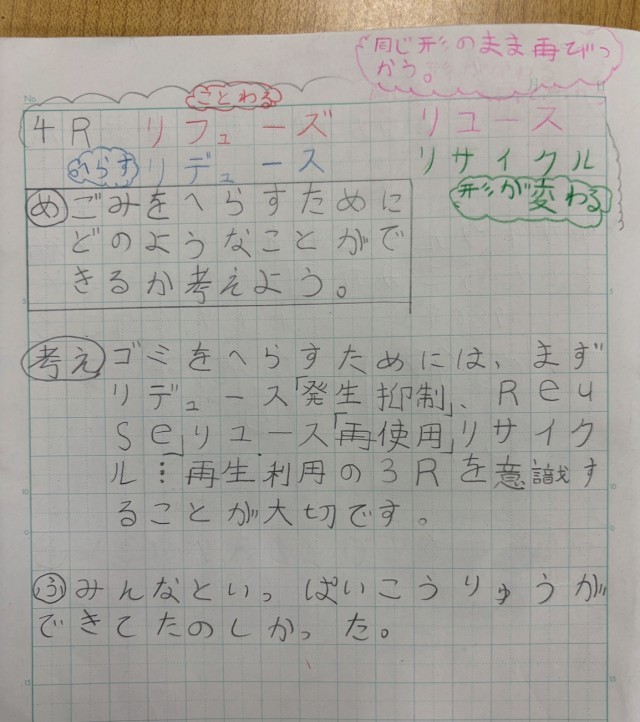 同じ形のまま再びつ
かう。
ことわる
4R リフューズ リユース
へらす リデュース リサイクル
形が変わる
め ごみをへらすために
どのようなことがで
きるか考えよう。
考え ゴミをへらすためには、まず
リデュース「発生抑制」、Reu
se」リユース「再使用」リサイク
ル…再生利用の3Rを意識す
ることが大切です。
ふ みんなといっぱいこうりゅうが
できてたのしかった。